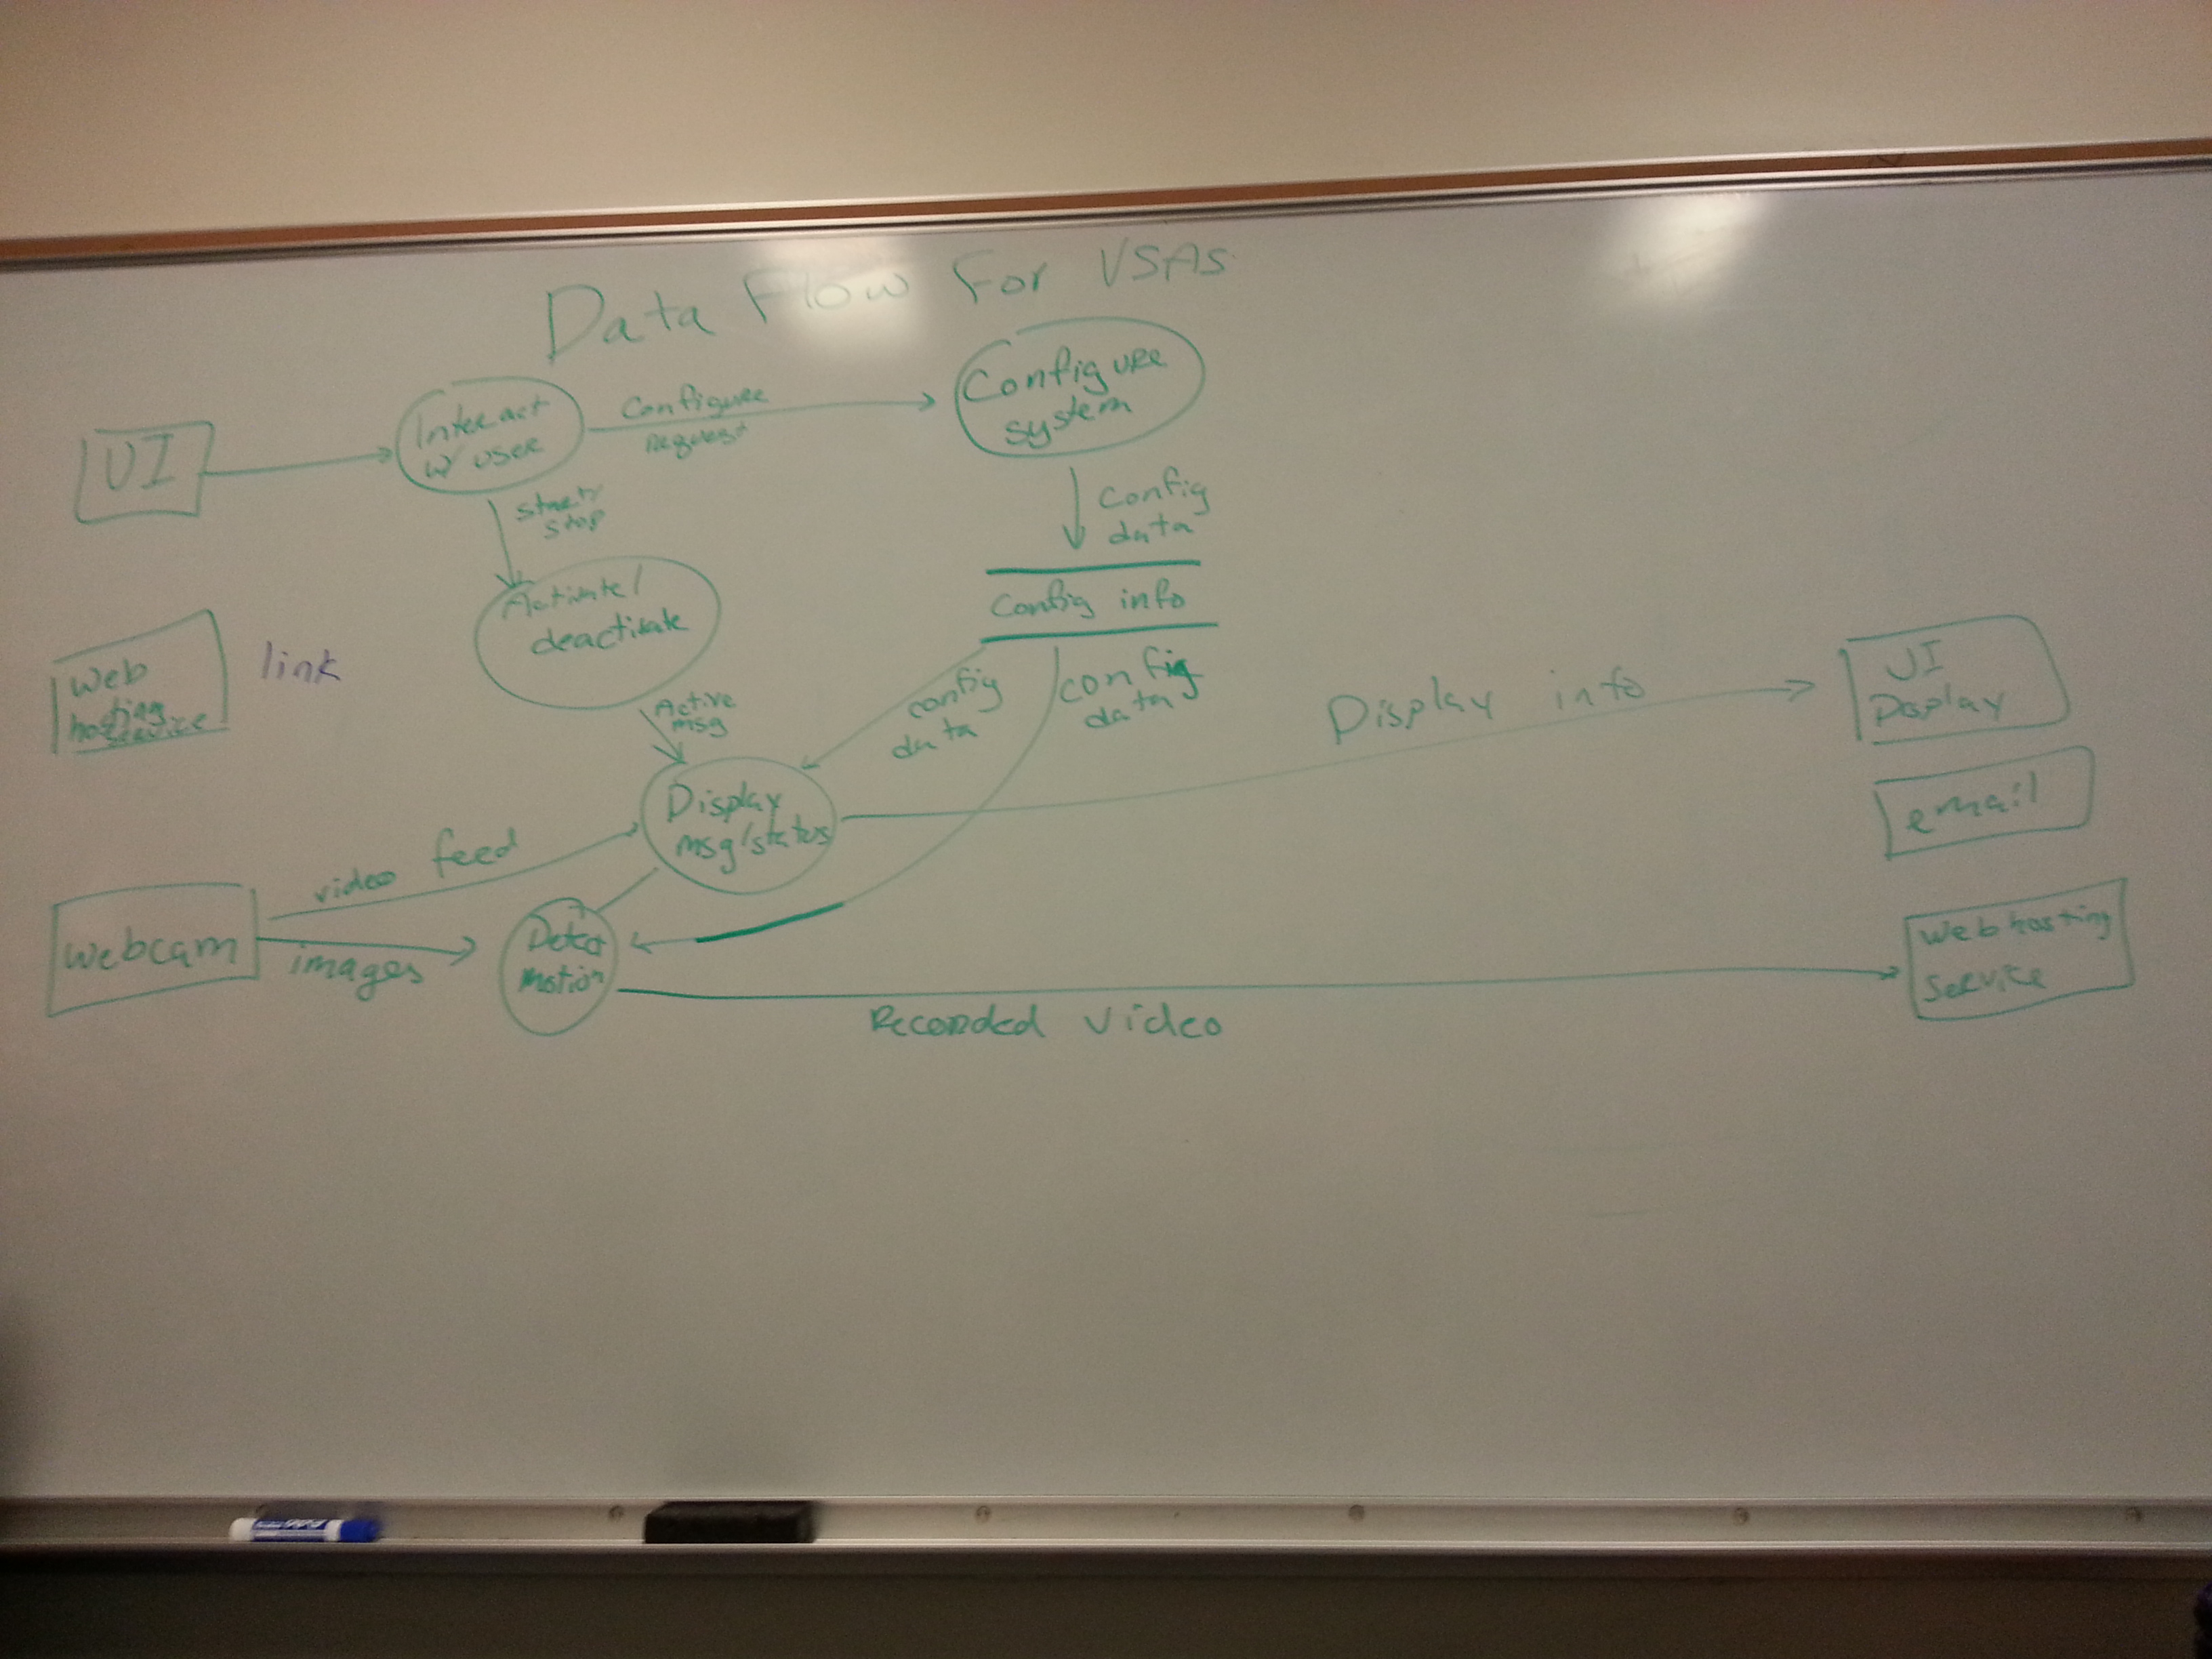 Data Flow For VSAS
UI
Interact
w/ user
Configure
request
Configure
system
start/
stop
Config
data
Activate/
deactivate
Config info
web
hosting
service
link
Active
msg
config
data
config
data
Display info
UI
Display
email
Display
msg/status
video feed
webcam
images
Detect
motion
Recorded video
web hosting
service